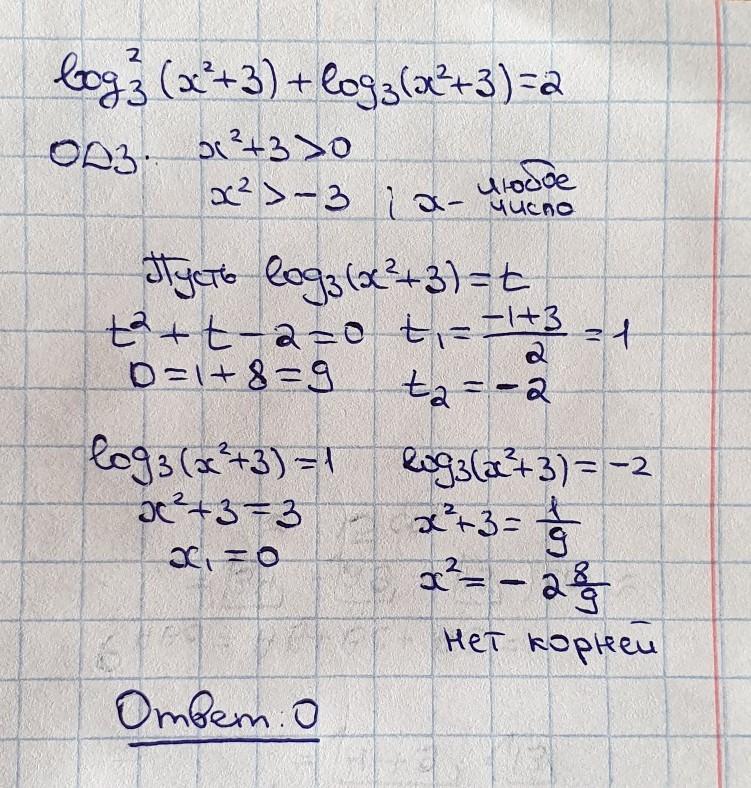 log₃²(x²+3)+log₃(x²+3)=2
ОДЗ: x²+3>0
x²>-3 ; x- любое число
Пусть log₃(x²+3)=t
t²+t-2=0 t₁=(-1+3)/2=1
D=1+8=9 t₂=-2
log₃(x²+3)=1 log₃(x²+3)=-2
x²+3=3 x²+3=1/9
x₁=0 x²=-2 8/9
нет корней
Ответ: 0